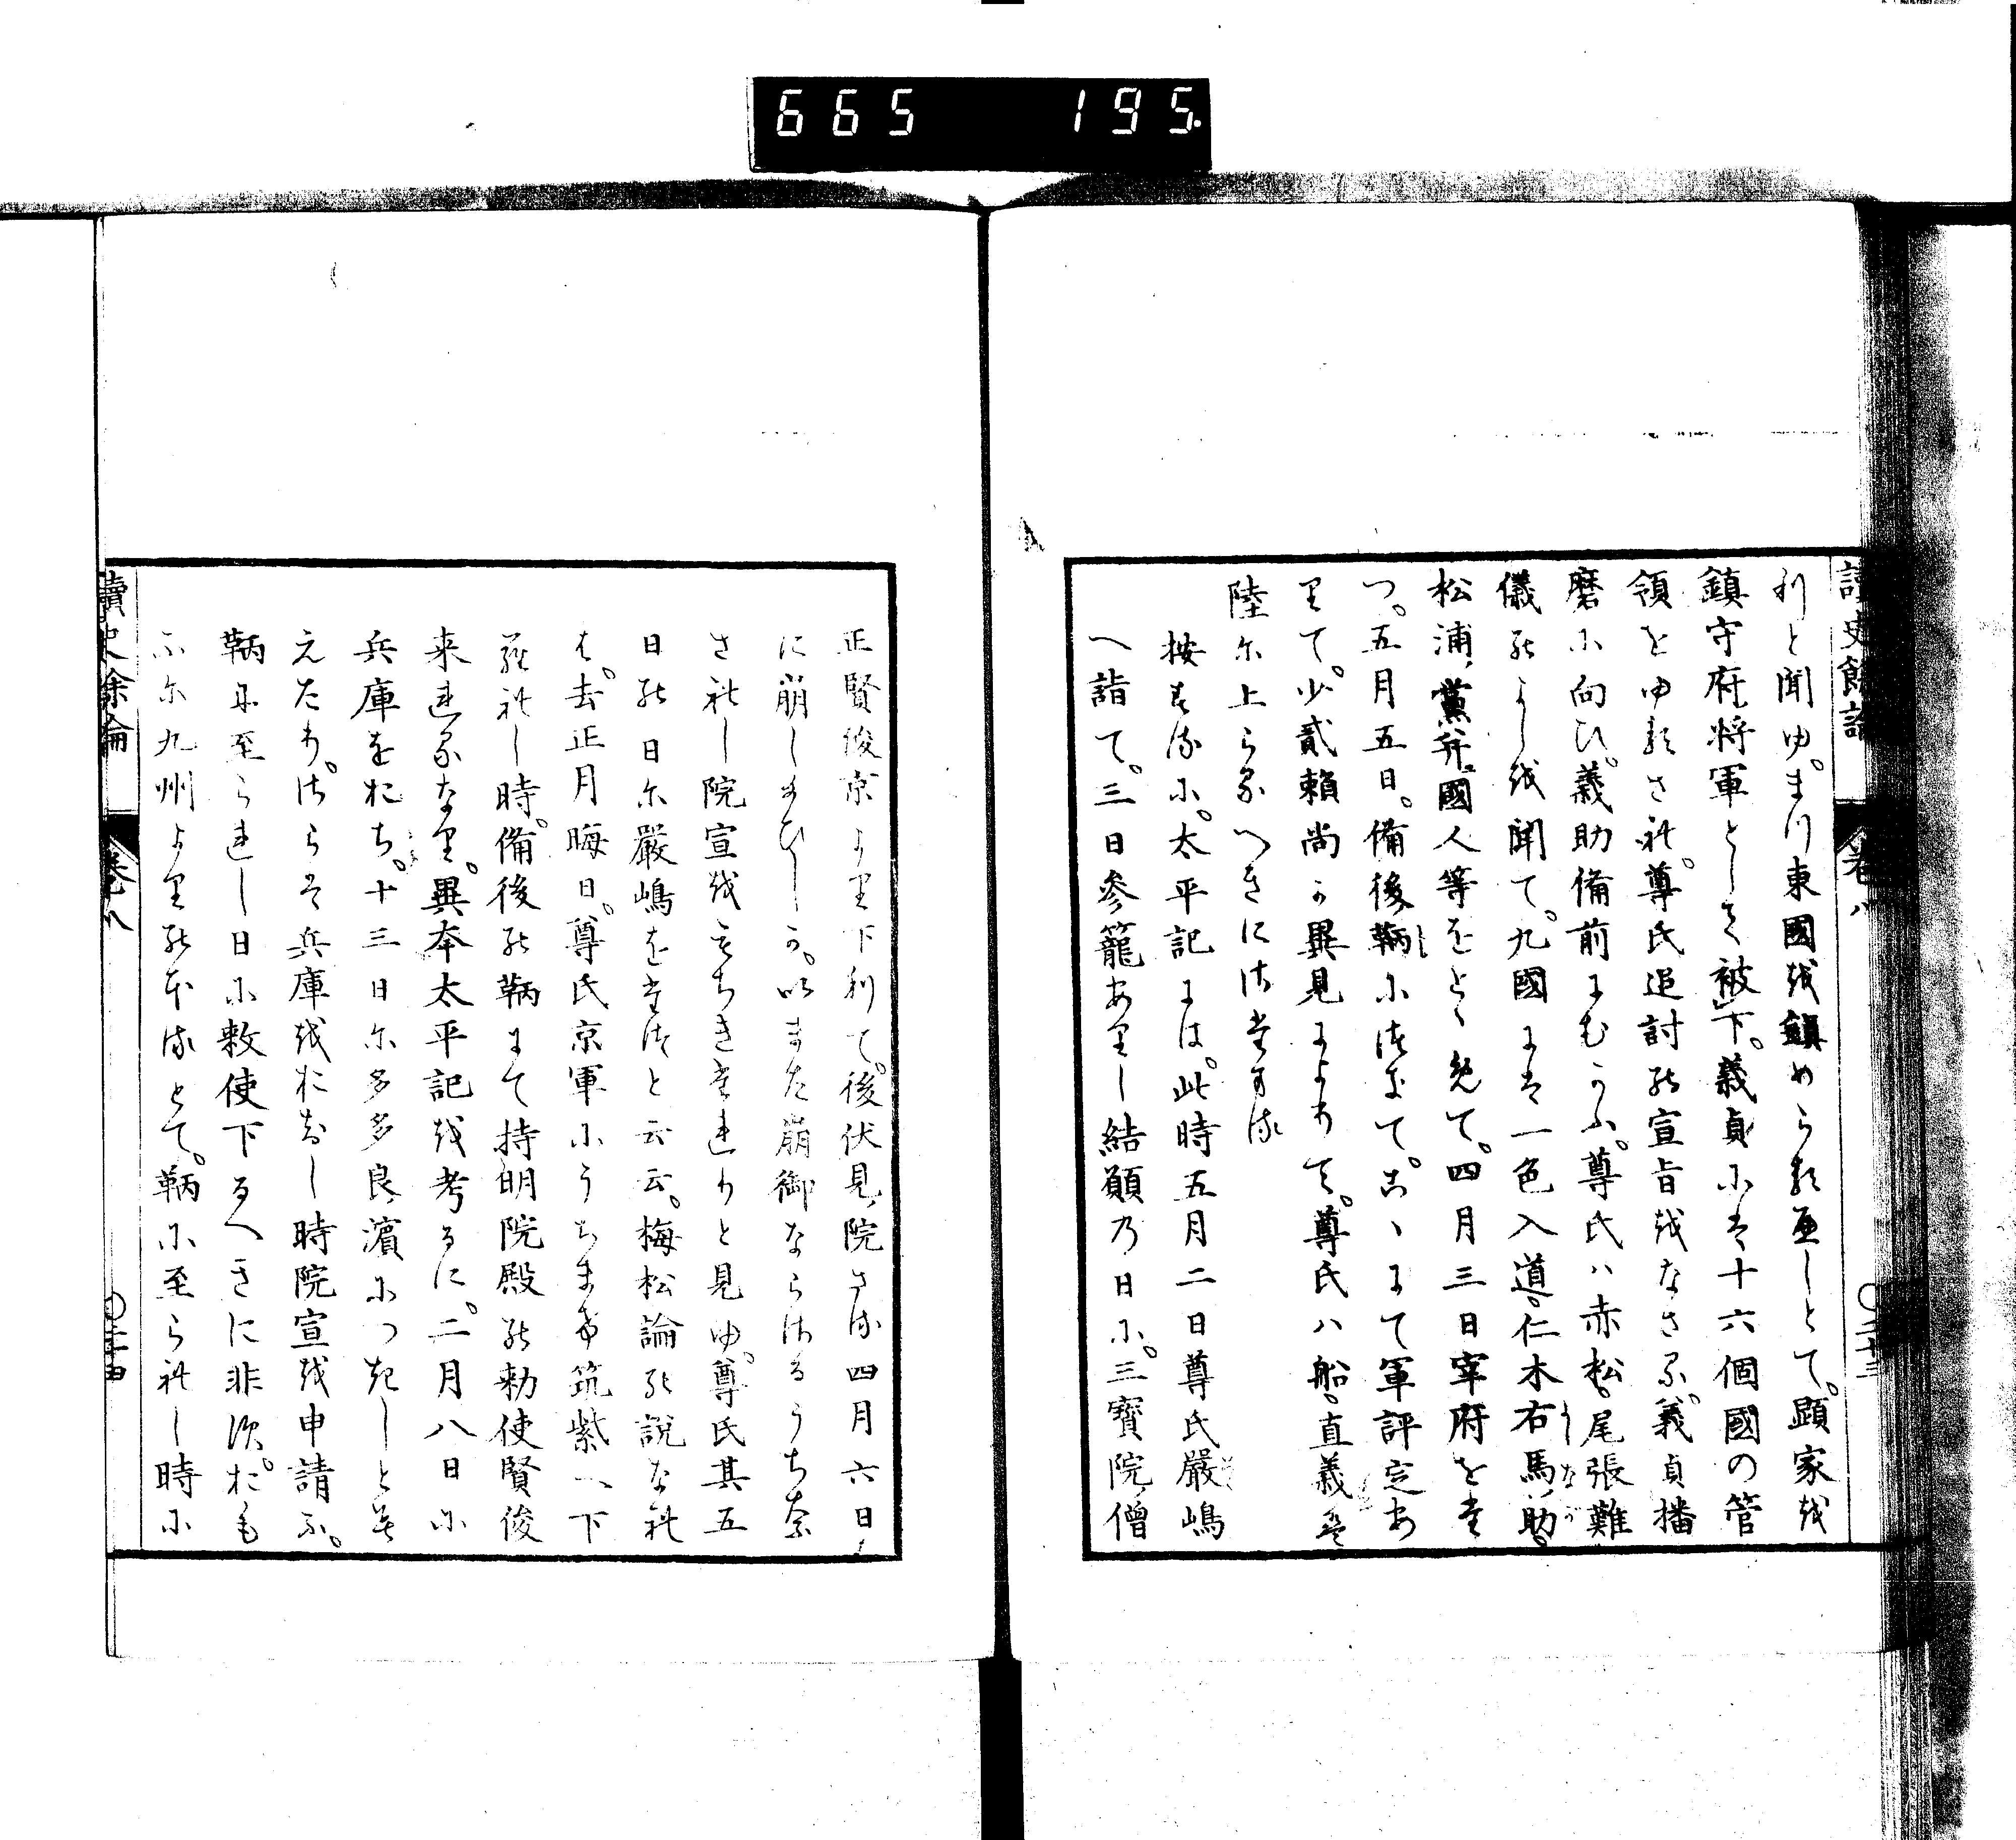 665 195.
讀史餘論 巻八 〇二十三
利と聞ゆ。まづ東國を鎮めらるべしとて。顕家を
鎮守府将軍として被下。義貞には十六個國の管
領をゆるされ。尊氏追討の宣旨をなさる。義貞播
磨に向ひ。義助備前にむかふ。尊氏ハ赤松。尾張難
儀のよしを聞て。九國には一色入道。仁木右馬助。
松浦、黨并國人等をとゝめて。四月三日宰府をた
つ。五月五日。備後鞆につきて。こゝにて軍評定あ
りて。少貳頼尚か異見によりて。尊氏ハ船。直義は
陸に上らるへきにさたまる
按するに。太平記には。此時五月二日尊氏嚴嶋
へ詣て。三日参籠ありし結願乃日に。三寶院僧
正賢俊京より下利て。後伏見院さる四月六日
に崩しまひしか。いまた崩御ならさるうちな
されし院宣をもちきたれりと見ゆ。尊氏其五
日の日に嚴嶋をたつと云云。梅松論の説なれ
は。去正月晦日。尊氏京軍にうちまけ筑紫へ下
られし時。備後の鞆にて持明院殿の勅使賢俊
来れるなり。異本太平記を考るに。二月八日に
兵庫をおち。十三日に多多良濱につきしと見
えたり。さらは兵庫をおちし時院宣を申請ふ。
鞆に至られし日に敕使下るへきに非す。おも
ふに九州より のほるとて。鞆に至られし時に
讀史餘論 巻八 〇二十四